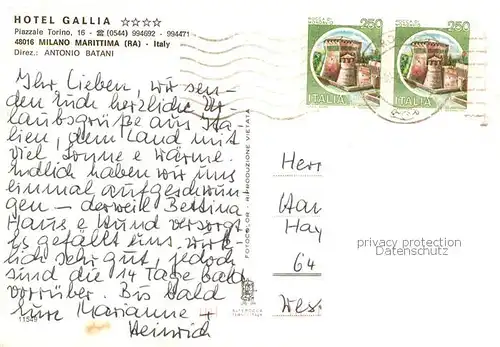 HOTEL GALLIA ☆☆☆☆
Piazzale Torino, 16 - ☎ (0544) 994692 - 994471
48016 MILANO MARITTIMA (RA) - Italy
Direz.: ANTONIO BATANI
Ihr Lieben, wir sen-
den Euch herzliche Ur-
laubsgrüße aus Ita-
lien, dem Land mit
viel Sonne e wärme.
Endlich haben wir uns
einmal aufgeschwun-
gen - derweil Bettina
Haus e Hund versorgt
Es gefällt uns wirk-
lich sehr gut, jedoch
sind die 14 Tage bald
vorrüber. Bis bald
Eure Marianne +
Heinrich
11549
FOTOCOLOR - RIPRODUZIONE VIETATA
ROCCA DI
MONDAVIO
250
ITALIA
ROCCA DI
MONDAVIO
250
ITALIA
Herr
Hay
64
Wess
privacy protection
Datenschutz